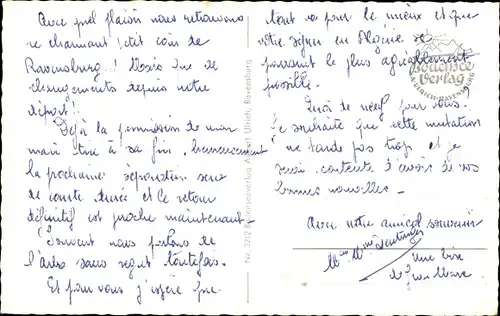 Avec quel plaisir nous retrouvons
ce charmant petit coin de
Ravensburg! Mais que de
changements depuis notre
départ!
Déjà la permission de mon
mari tire à sa fin, heureusement
la prochaine séparation sera
de courte durée et le retour
définitif est proche maintenant.
Souvent nous parlons de
l'arbre sans
Et pour vous j'espère que
tout va pour le mieux et que
votre séjour en Algérie se
poursuit le plus agréablement
possible.
Quoi de neuf pour vous.
Je souhaite que cette mutation
ne tarde pas trop et je
serai contente d'avoir de vos
bonnes nouvelles -
Avec notre amical souvenir
Mr Mme
Une bise
de Jean Marc
Nr. 2212 Bodenseeverlag A. Ulrich, Ravensburg
Bodensee
Verlag
A. ULRICH · RAVENSBURG